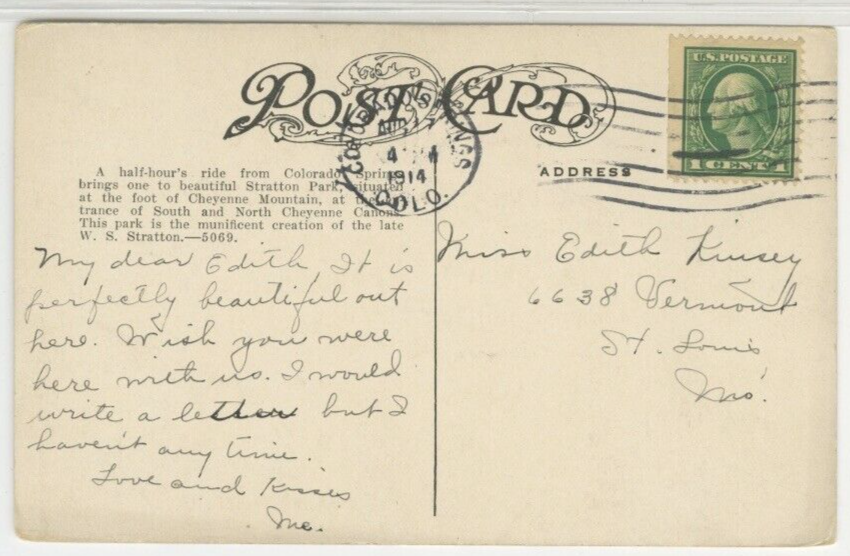 POST CARD
U.S. POSTAGE
1 CENT 1
COLORADO SPRINGS
AUG
4
1914
COLO.
ADDRESS
A half-hour's ride from Colorado Springs
brings one to beautiful Stratton Park, situated
at the foot of Cheyenne Mountain, at the en-
trance of South and North Cheyenne Canons.
This park is the munificent creation of the late
W. S. Stratton.—5069.
My dear Edith, It is
perfectly beautiful out
here. Wish you were
here with us. I would
write a letter but I
haven't any time.
Love and Kisses
Me.
Miss Edith Kinsey
6638 Vermont
St. Louis
Mo.